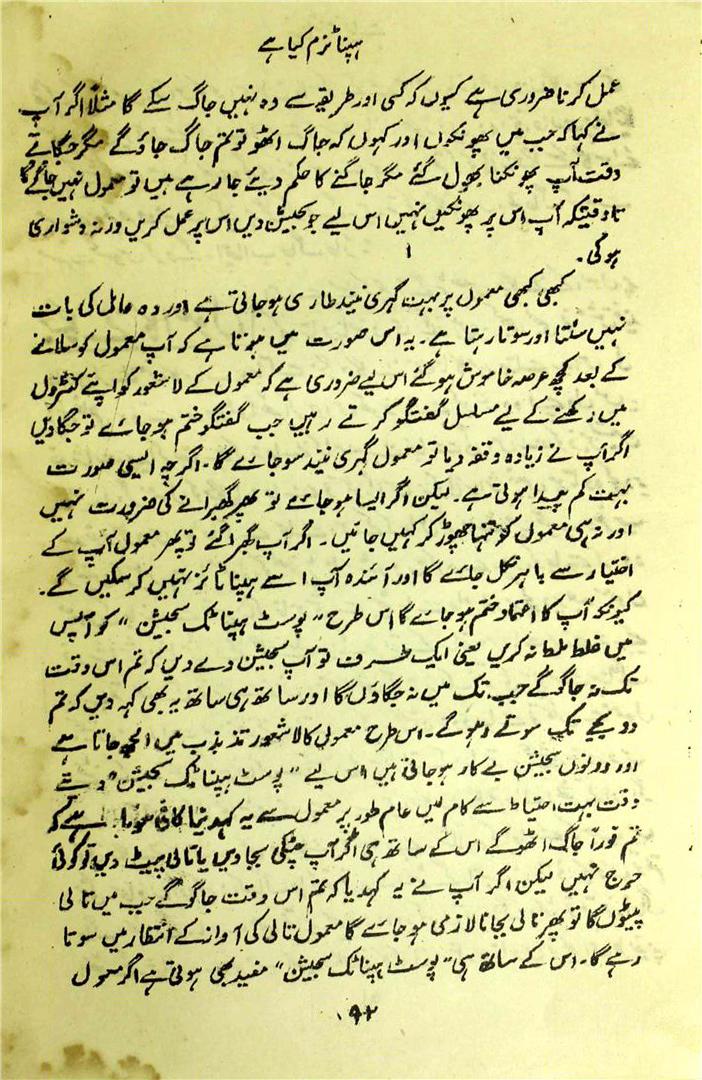 ہپناٹزم کیا ہے
عمل کرنا ضروری ہے کیوں کہ کسی اور طریقے سے وہ نہیں جاگ سکے گا مثلاً اگر آپ
نے کہا کہ جب میں پھونکوں اور کہوں کہ جاگ اٹھو تو تم جاگ جاؤ گے مگر جگاتے
وقت آپ پھونکنا بھول گئے مگر جاگنے کا حکم دیئے جا رہے ہیں تو معمول نہیں جاگے گا
تاوقتیکہ آپ اس پر پھونکیں نہیں اس لیے جو سجیشن دیں اس پر عمل کریں ورنہ دشواری
ہو گی۔
کبھی کبھی معمول پر بہت گہری نیند طاری ہو جاتی ہے اور وہ عامل کی بات
نہیں سنتا اور سوتا رہتا ہے۔ یہ اس صورت میں ہوتا ہے کہ آپ معمول کو سلانے
کے بعد کچھ عرصہ خاموش ہو گئے اس لیے ضروری ہے کہ معمول کے لاشعور کو اپنے کنٹرول
میں رکھنے کے لیے مسلسل گفتگو کرتے رہیں جب گفتگو ختم ہو جائے تو جگا دیں
اگر آپ نے زیادہ وقفہ دیا تو معمول گہری نیند سو جائے گا۔ اگرچہ ایسی صورت
بہت کم پیدا ہوتی ہے۔ لیکن اگر ایسا ہو جائے تو پھر گھبرانے کی ضرورت نہیں
اور نہ ہی معمول کو تنہا چھوڑ کر کہیں جائیں۔ اگر آپ گھبرا گئے تو پھر معمول آپ کے
اختیار سے باہر نکل جائے گا اور آئندہ آپ اسے ہپناٹائز نہیں کر سکیں گے۔
کیونکہ آپ کا اعتماد ختم ہو جائے گا اس طرح "پوسٹ ہپناٹک سجیشن" کو آپس
میں غلط ملط نہ کریں یعنی ایک طرف تو آپ سجیشن دے دیں کہ تم اس وقت
تک نہ جاگو گے جب تک میں نہ جگاؤں گا اور ساتھ ہی ساتھ یہ بھی کہہ دیں کہ تم
دو بجے تک سوتے رہو گے۔ اس طرح معمول کا لاشعور تذبذب میں الجھ جاتا ہے
اور دونوں سجیشن بے کار ہو جاتی ہیں اس لیے "پوسٹ ہپناٹک سجیشن" دیتے
وقت بہت احتیاط سے کام لیں عام طور پر معمول سے یہ کہہ دینا کافی ہوتا ہے کہ
تم فوراً جاگ اٹھو گے اس کے ساتھ ہی اگر آپ چٹکی بجا دیں یا تالی پیٹ دیں تو کوئی
حرج نہیں لیکن اگر آپ نے یہ کہہ دیا کہ تم اس وقت جاگو گے جب میں تالی
پیٹوں گا تو پھر تالی بجانا لازمی ہو جائے گا معمول تالی کی آواز کے انتظار میں سوتا
رہے گا۔ اس کے ساتھ ہی "پوسٹ ہپناٹک سجیشن" مفید بھی ہوتی ہے اگر معمول
۹۲